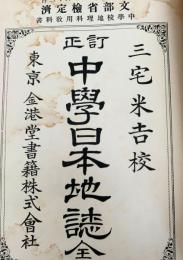 文部省檢定濟
中學校地理科用教科書
三宅米吉校
訂正
中學日本地誌全
東京 金港堂書籍株式會社